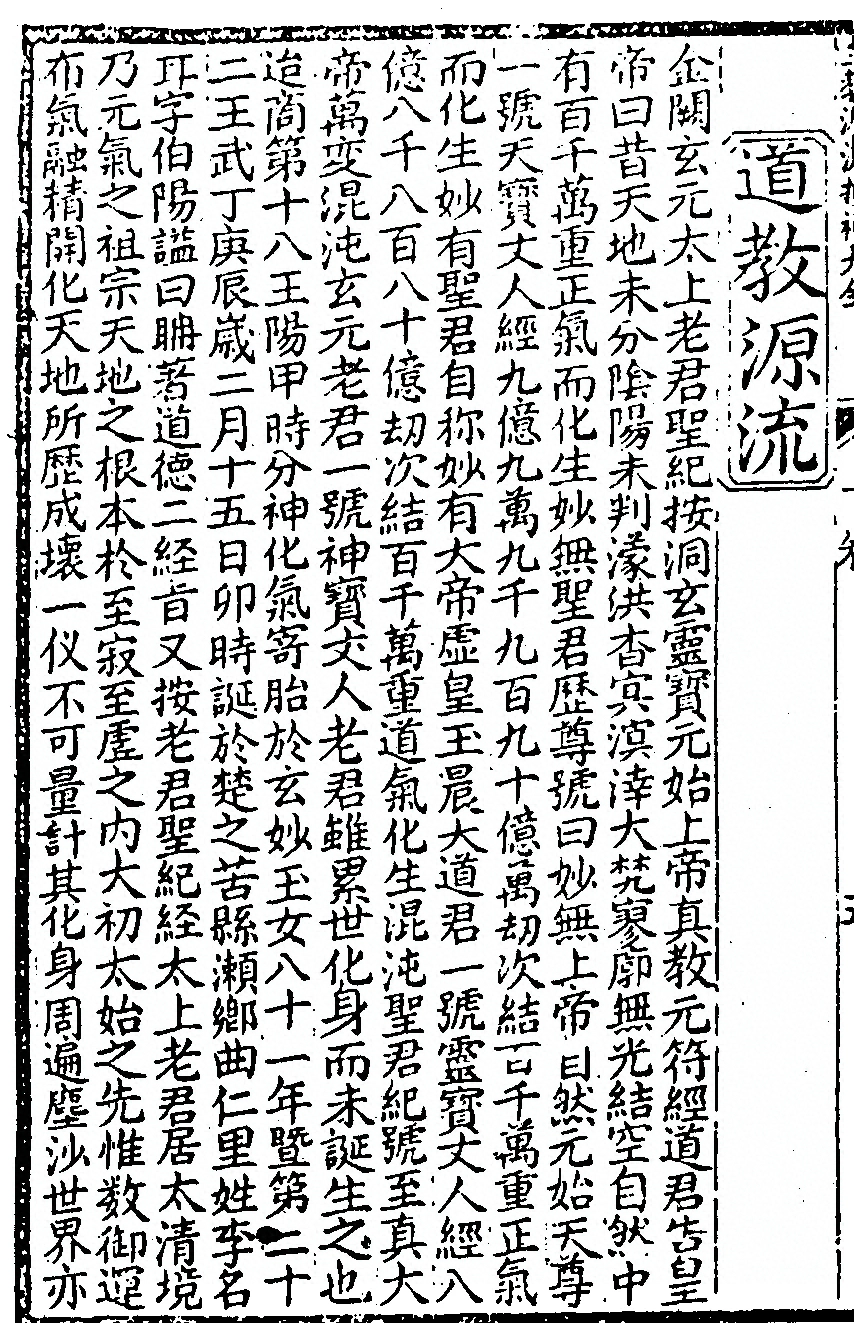 道教源流
金闕玄元太上老君聖紀按洞玄靈寶元始上帝真教元符經道君告皇
帝曰昔天地未分陰陽未判濛洪杳㝠溟涬大梵寥廓無光結空自然中
有百千萬重正氣而化生妙無聖君歴尊號曰妙無上帝自然元始天尊
一號天寶丈人經九億九萬九千九百九十億萬刼次結百千萬重正氣
而化生妙有聖君自称妙有大帝虚皇玉晨大道君一號靈寶丈人經八
億八千八百八十億刼次結百千萬重道氣化生混沌聖君紀號至真大
帝萬变混沌玄元老君一號神寶丈人老君雖累世化身而未誕生之也
迨商第十八王陽甲時分神化氣寄胎於玄妙玉女八十一年暨第二十
二王武丁庚辰嵗二月十五日卯時誕於楚之苦縣瀬鄉曲仁里姓李名
耳字伯陽謚曰聃著道德二経㫖又按老君聖紀経太上老君居太清境
乃元氣之祖宗天地之根本於至寂至虗之内大初太始之先惟数御運
布氣融精開化天地所歴成壞一仪不可量計其化身周遍塵沙世界亦